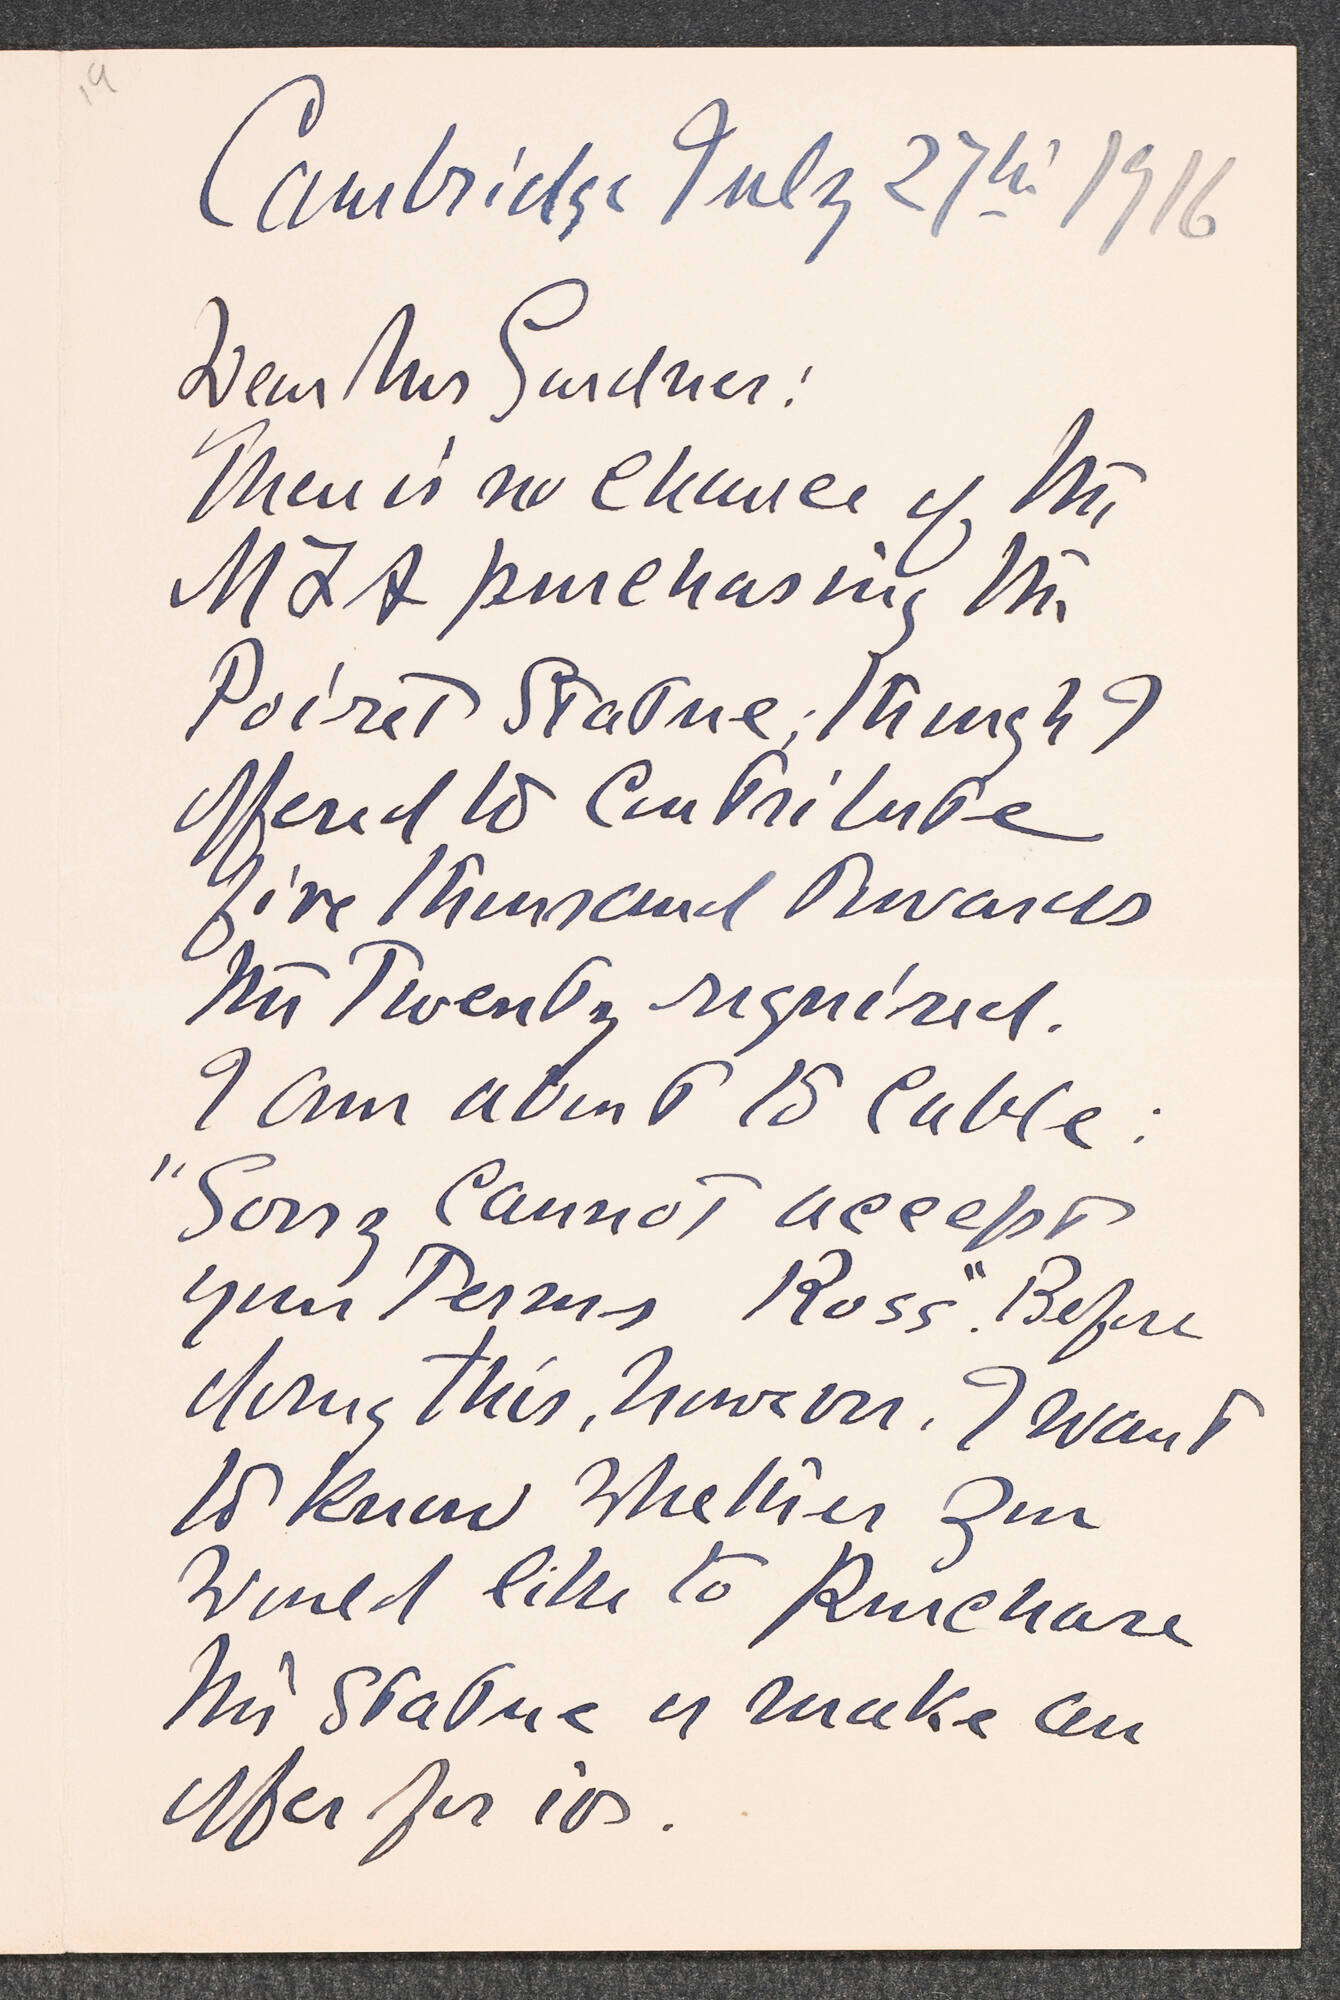 19
Cambridge July 27th 1916
Dear Mrs Gardner:
There is no chance of the
MFA purchasing the
Poiret Statue, though I
offered to contribute
five thousand towards
the Twenty required.
I am about to cable:
"Sorry cannot accept
your Terms Ross". Before
doing this, however, I want
to know whether you
would like to purchase
the statue or make an
offer for it.